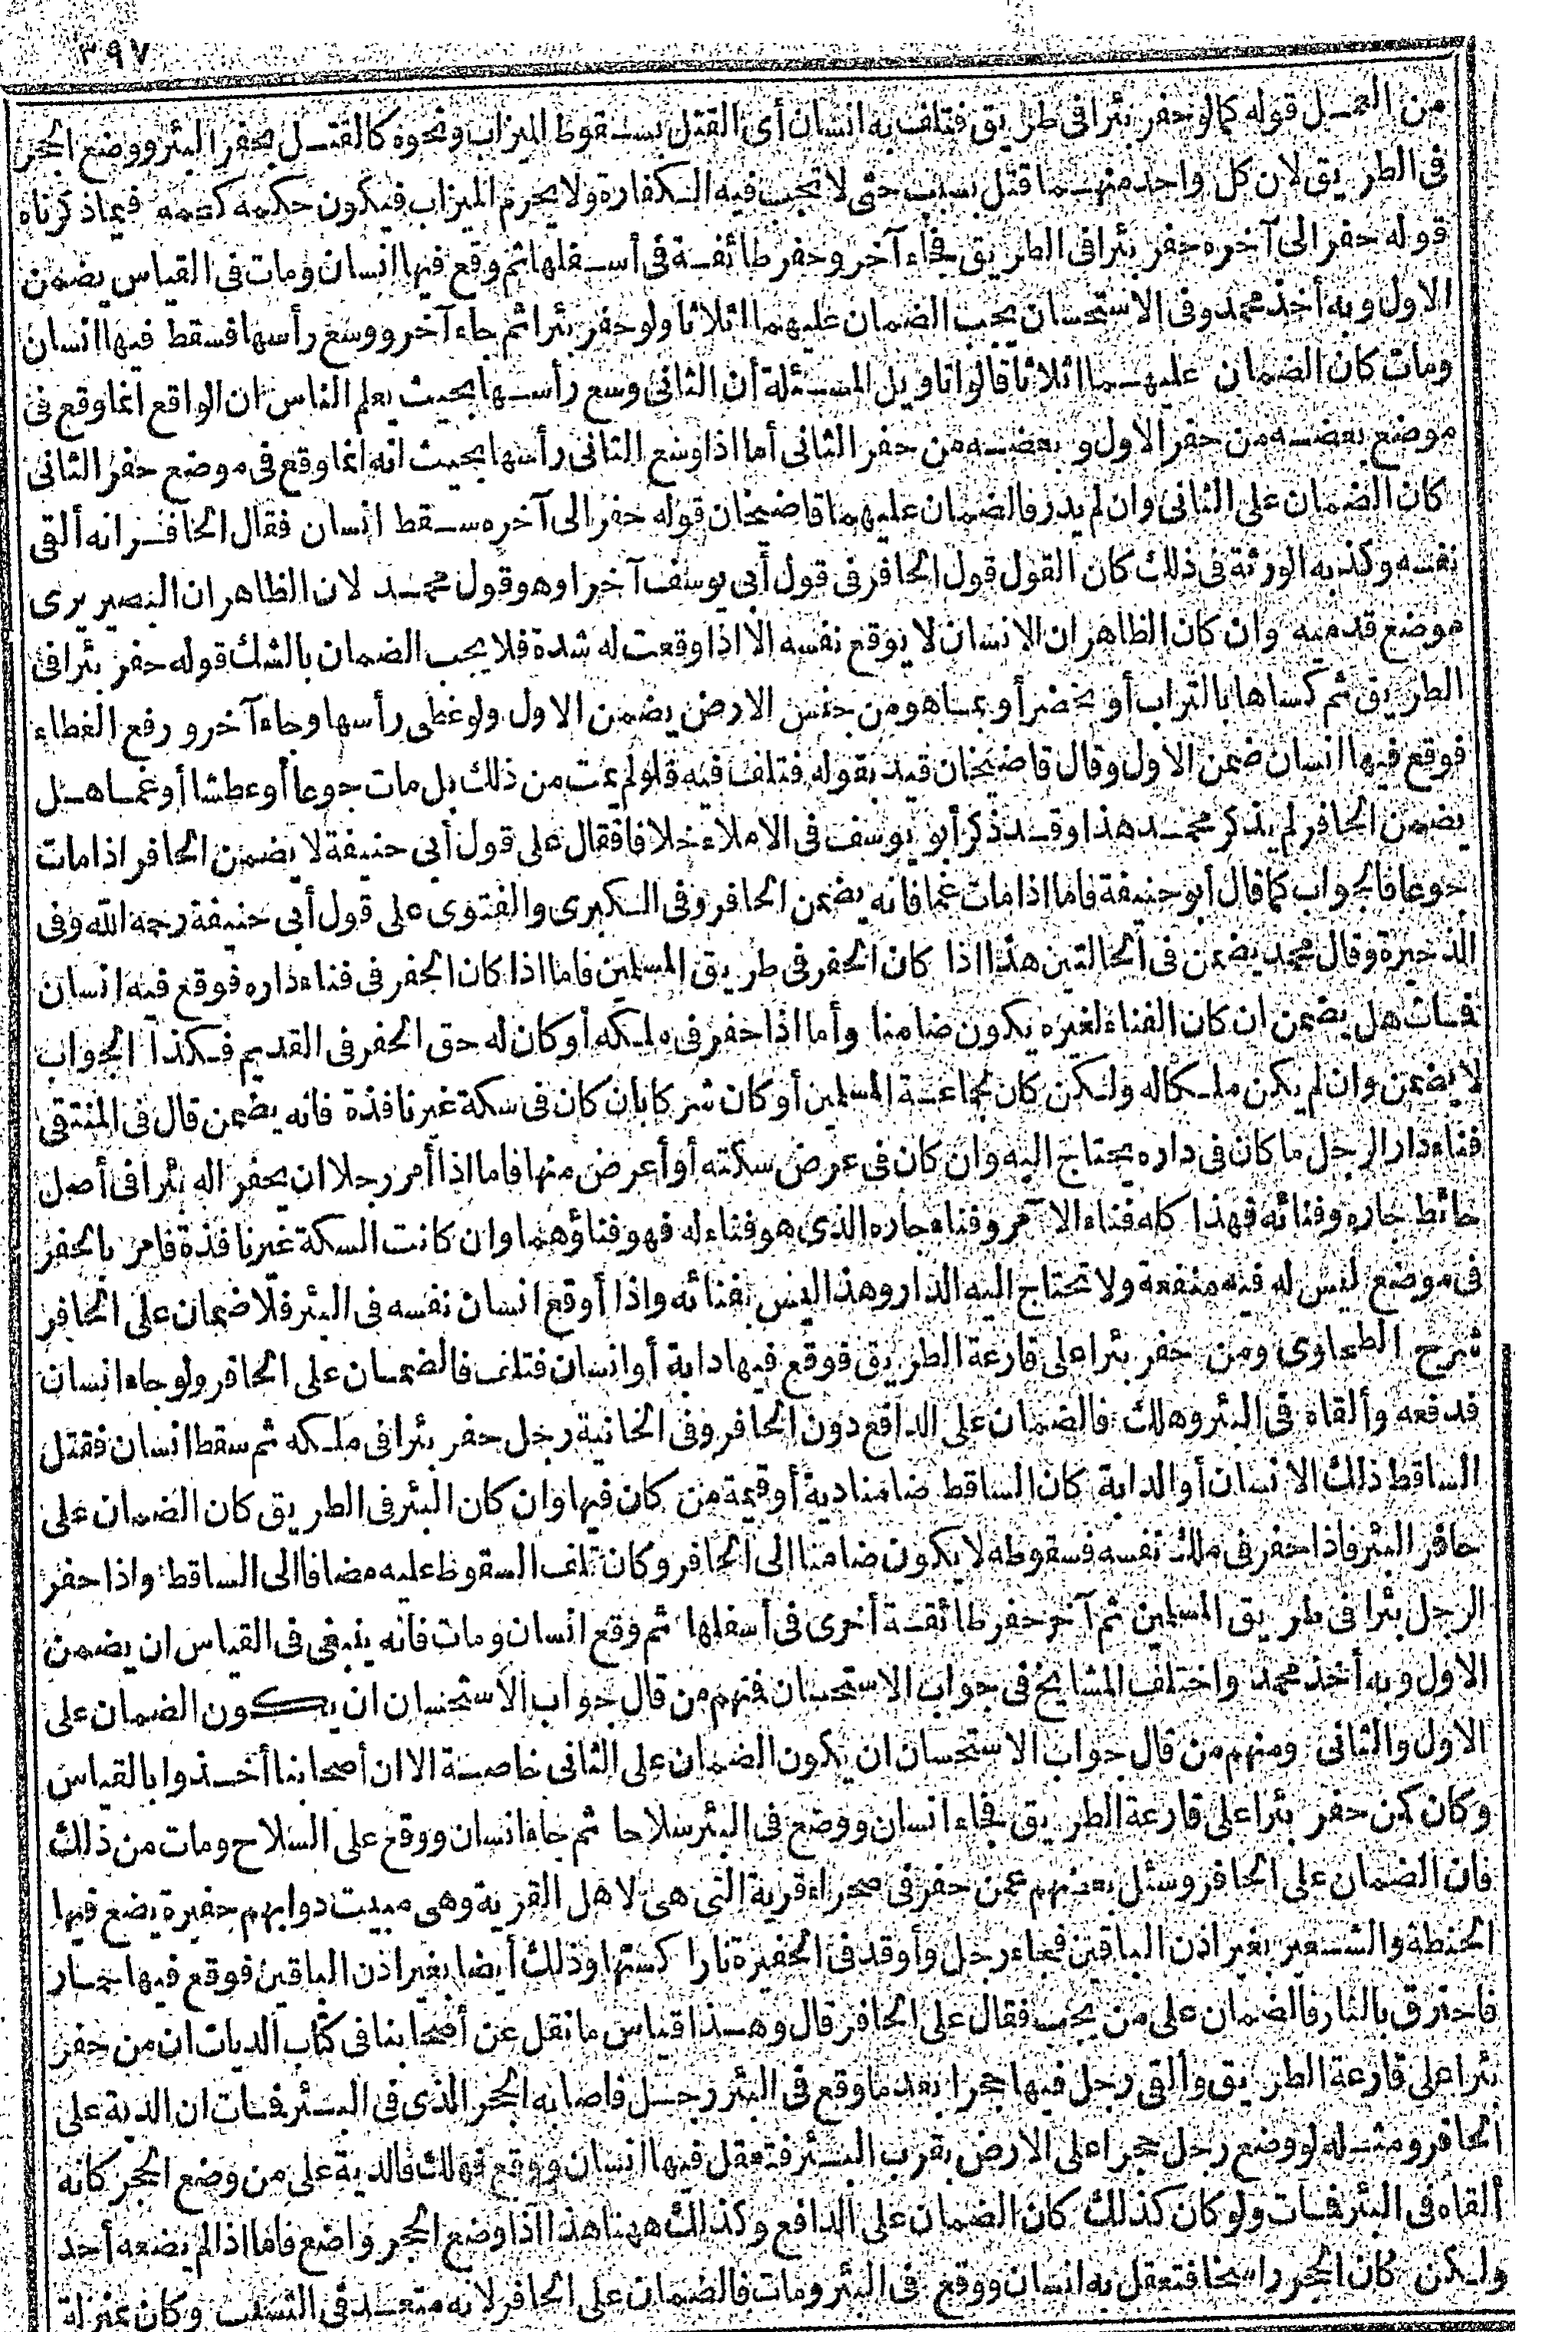 ٣٩٧
من العمل قوله كما لو حفر بئرا فى طريق فتلف به انسان أى القتل بسقوط الميزاب ونحوه كالقتل بحفر البئر ووضع الحجر
فى الطريق لان كل واحد منهما قتل بسبب حتى لا تجب فيه الكفارة ولا يحرم الميراث فيكون حكمه كحكمه فيما ذكرناه
قوله حفر الى آخره حفر بئرا فى الطريق فجاء آخر وحفر طائفة فى أسفلها ثم وقع فيها انسان ومات فى القياس يضمن
الاول وبه أخذ محمد وفى الاستحسان يجب الضمان عليهما اثلاثا ولو حفر بئرا ثم جاء آخر ووسع رأسها فسقط فيها انسان
ومات كان الضمان عليهما اثلاثا قالوا تاويل المسئلة أن الثانى وسع رأسها بحيث يعلم الناس ان الواقع انما وقع فى
موضع بعضه من حفر الاول وبعضه من حفر الثانى أما اذا وسع الثانى رأسها بحيث انه انما وقع فى موضع حفر الثانى
كان الضمان على الثانى وان لم يدر فالضمان عليهما قاضيخان قوله حفر الى آخره سقط انسان فقال الحافر انه ألقى
نفسه وكذبه الورثة فى ذلك كان القول قول الحافر فى قول أبى يوسف آخرا وهو قول محمد لان الظاهر ان البصير يرى
موضع قدميه وان كان الظاهر ان الانسان لا يوقع نفسه الا اذا وقعت له شدة فلا يجب الضمان بالشك قوله حفر بئرا فى
الطريق ثم كساها بالتراب أو بخضر أو بما هو من جنس الارض يضمن الاول ولو غطى رأسها وجاء آخر ورفع الغطاء
فوقع فيها انسان ضمن الاول وقال قاضيخان قيد بقوله فتلف فيه فلو لم يمت من ذلك بل مات جوعا أو عطشا أو غما هل
يضمن الحافر لم يذكر محمد هذا وقد ذكر أبو يوسف فى الاملاء خلافا فقال على قول أبى حنيفة لا يضمن الحافر اذا مات
جوعا فالجواب كما قال أبو حنيفة فاما اذا مات غما فانه يضمن الحافر وفى الكبرى والفتوى على قول أبى حنيفة رحمه الله وفى
الذخيرة وقال محمد يضمن فى الحالتين هذا اذا كان الحفر فى طريق المسلمين فاما اذا كان الحفر فى فناء داره فوقع فيه انسان
فمات هل يضمن ان كان الفناء لغيره يكون ضامنا وأما اذا حفر فى ملكه أو كان له حق الحفر فى القديم فكذا الجواب
لا يضمن وان لم يكن ملكا له ولكن كان لجماعة المسلمين أو كان شركا بان كان فى سكة غير نافذة فانه يضمن قال فى المنتقى
فناء دار الرجل ما كان فى داره يحتاج اليه وان كان فى عرض سكته أو أعرض منها فاما اذا أمر رجلا ان يحفر اله بئرا فى أصل
حائط جاره وفنائه فهذا كله فناء الآمر وفناء جاره الذى هو فناء له فهو فناؤهما وان كانت السكة غير نافذة فامر بالحفر
فى موضع ليس له فيه منفعة ولا تحتاج اليه الدار وهذا ليس بفنائه واذا أوقع انسان نفسه فى البئر فلا ضمان على الحافر
شرح الطحاوى ومن حفر بئرا على قارعة الطريق فوقع فيها دابة أو انسان فتلف فالضمان على الحافر ولو جاء انسان
فدفعه وألقاه فى البئر وهلك فالضمان على الدافع دون الحافر وفى الخانية رجل حفر بئرا فى ملكه ثم سقط انسان فقتل
الساقط ذلك الانسان أو الدابة كان الساقط ضامنا دية أو قيمة من كان فيها وان كان البئر فى الطريق كان الضمان على
حافر البئر فاذا حفر فى ملك نفسه فسقوطه لا يكون ضامنا الى الحافر وكان تلف السقوط عليه مضافا الى الساقط واذا حفر
الرجل بئرا فى طريق المسلمين ثم آخر حفر طائفة أخرى فى أسفلها ثم وقع انسان ومات فانه ينبغى فى القياس ان يضمن
الاول وبه أخذ محمد واختلف المشايخ فى جواب الاستحسان فنهم من قال جواب الاستحسان ان يكون الضمان على
الاول والثانى ومنهم من قال جواب الاستحسان ان يكون الضمان على الثانى خاصة الا ان أصحابنا أخذوا بالقياس
وكان كمن حفر بئرا على قارعة الطريق فجاء انسان ووضع فى البئر سلاحا ثم جاء انسان ووقع على السلاح ومات من ذلك
فان الضمان على الحافر وسئل بعضهم عمن حفر فى صحراء قرية التى هى لاهل القرية وهى مبيت دوابهم حفيرة يضع فيها
الحنطة والشعير بغير اذن الباقين فجاء رجل وأوقد فى الحفيرة نارا كستها وذلك أيضا بغير اذن الباقين فوقع فيها حمار
فاحترق بالنار فالضمان على من يجب فقال على الحافر قال وهذا قياس ما نقل عن أصحابنا فى كتاب الديات ان من حفر
بئرا على قارعة الطريق وألقى رجل فيها حجرا بعد ما وقع فى البئر رجل فاصابه الحجر الذى فى البئر فمات ان الدية على
الحافر ومثله لو وضع رجل حجرا على الارض بقرب البئر فتعقل فيها انسان ووقع فهلك فالدية على من وضع الحجر كانه
ألقاه فى البئر فمات ولو كان كذلك كان الضمان على الدافع وكذلك ههنا هذا اذا وضع الحجر واضع فاما اذا لم يضعه أحد
ولكن كان الحجر راسخا فتعقل به انسان ووقع فى البئر ومات فالضمان على الحافر لانه متعد فى التسبب وكان بمنزلة